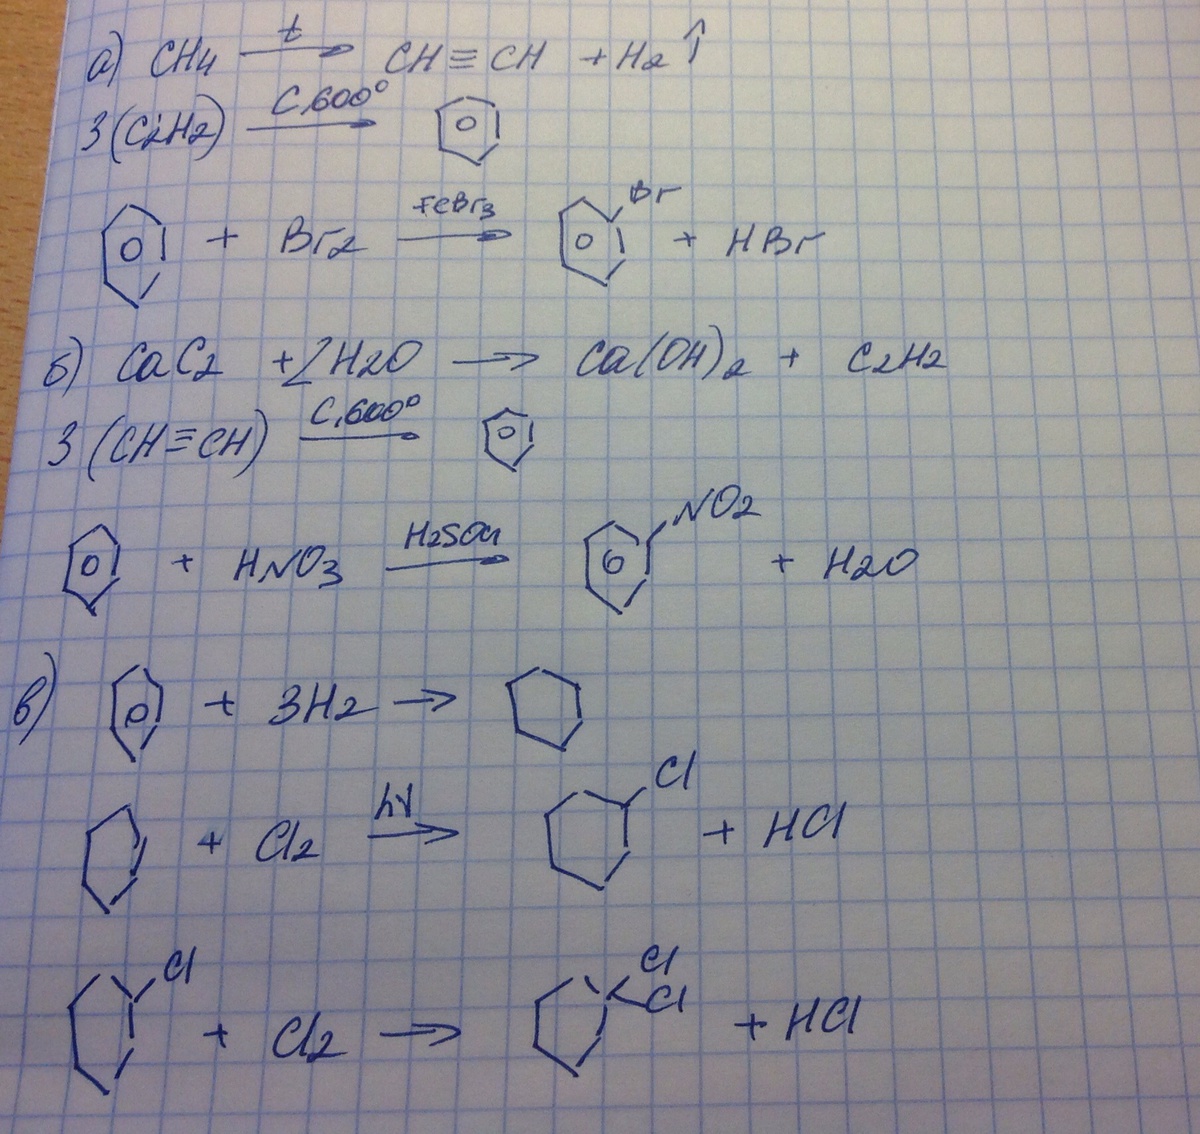 а) CH4 —t→ CH≡CH + H2↑
3(C2H2) —C,600°→
+ Br2 —FeBr3→ Br + HBr
б) CaC2 + 2H2O → Ca(OH)2 + C2H2
3(CH≡CH) —C,600°→
+ HNO3 —H2SO4→ NO2 + H2O
в) + 3H2 →
+ Cl2 —hν→ Cl + HCl
Cl + Cl2 → Cl Cl + HCl